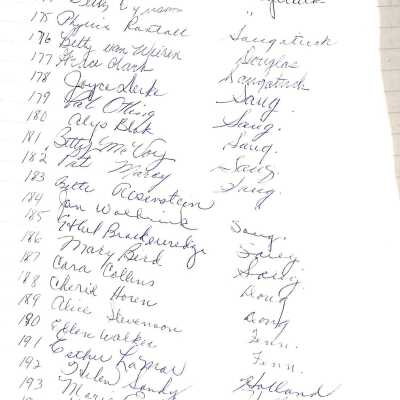 Betty
175 Phyllis Randall "
176 Betty van Wieren Saugatuck
177 Clark Douglas
178 Joyce Saugatuck
179 Pat Olling Saug.
180 Alys Blok Saug.
181 Betty McVoy Saug.
182 Pat Marcy Saug.
183 Bette Rosenstein Saug.
184 Jan
185 Ethel Brackenredge Saug.
186 Mary Bird
187 Cora Collins
188 Cherie Horen Doug
189 Alice Stevenson Doug
190 Ellen Walker Fenn.
191 Esther Fenn.
192 Helen Sandy Holland
193